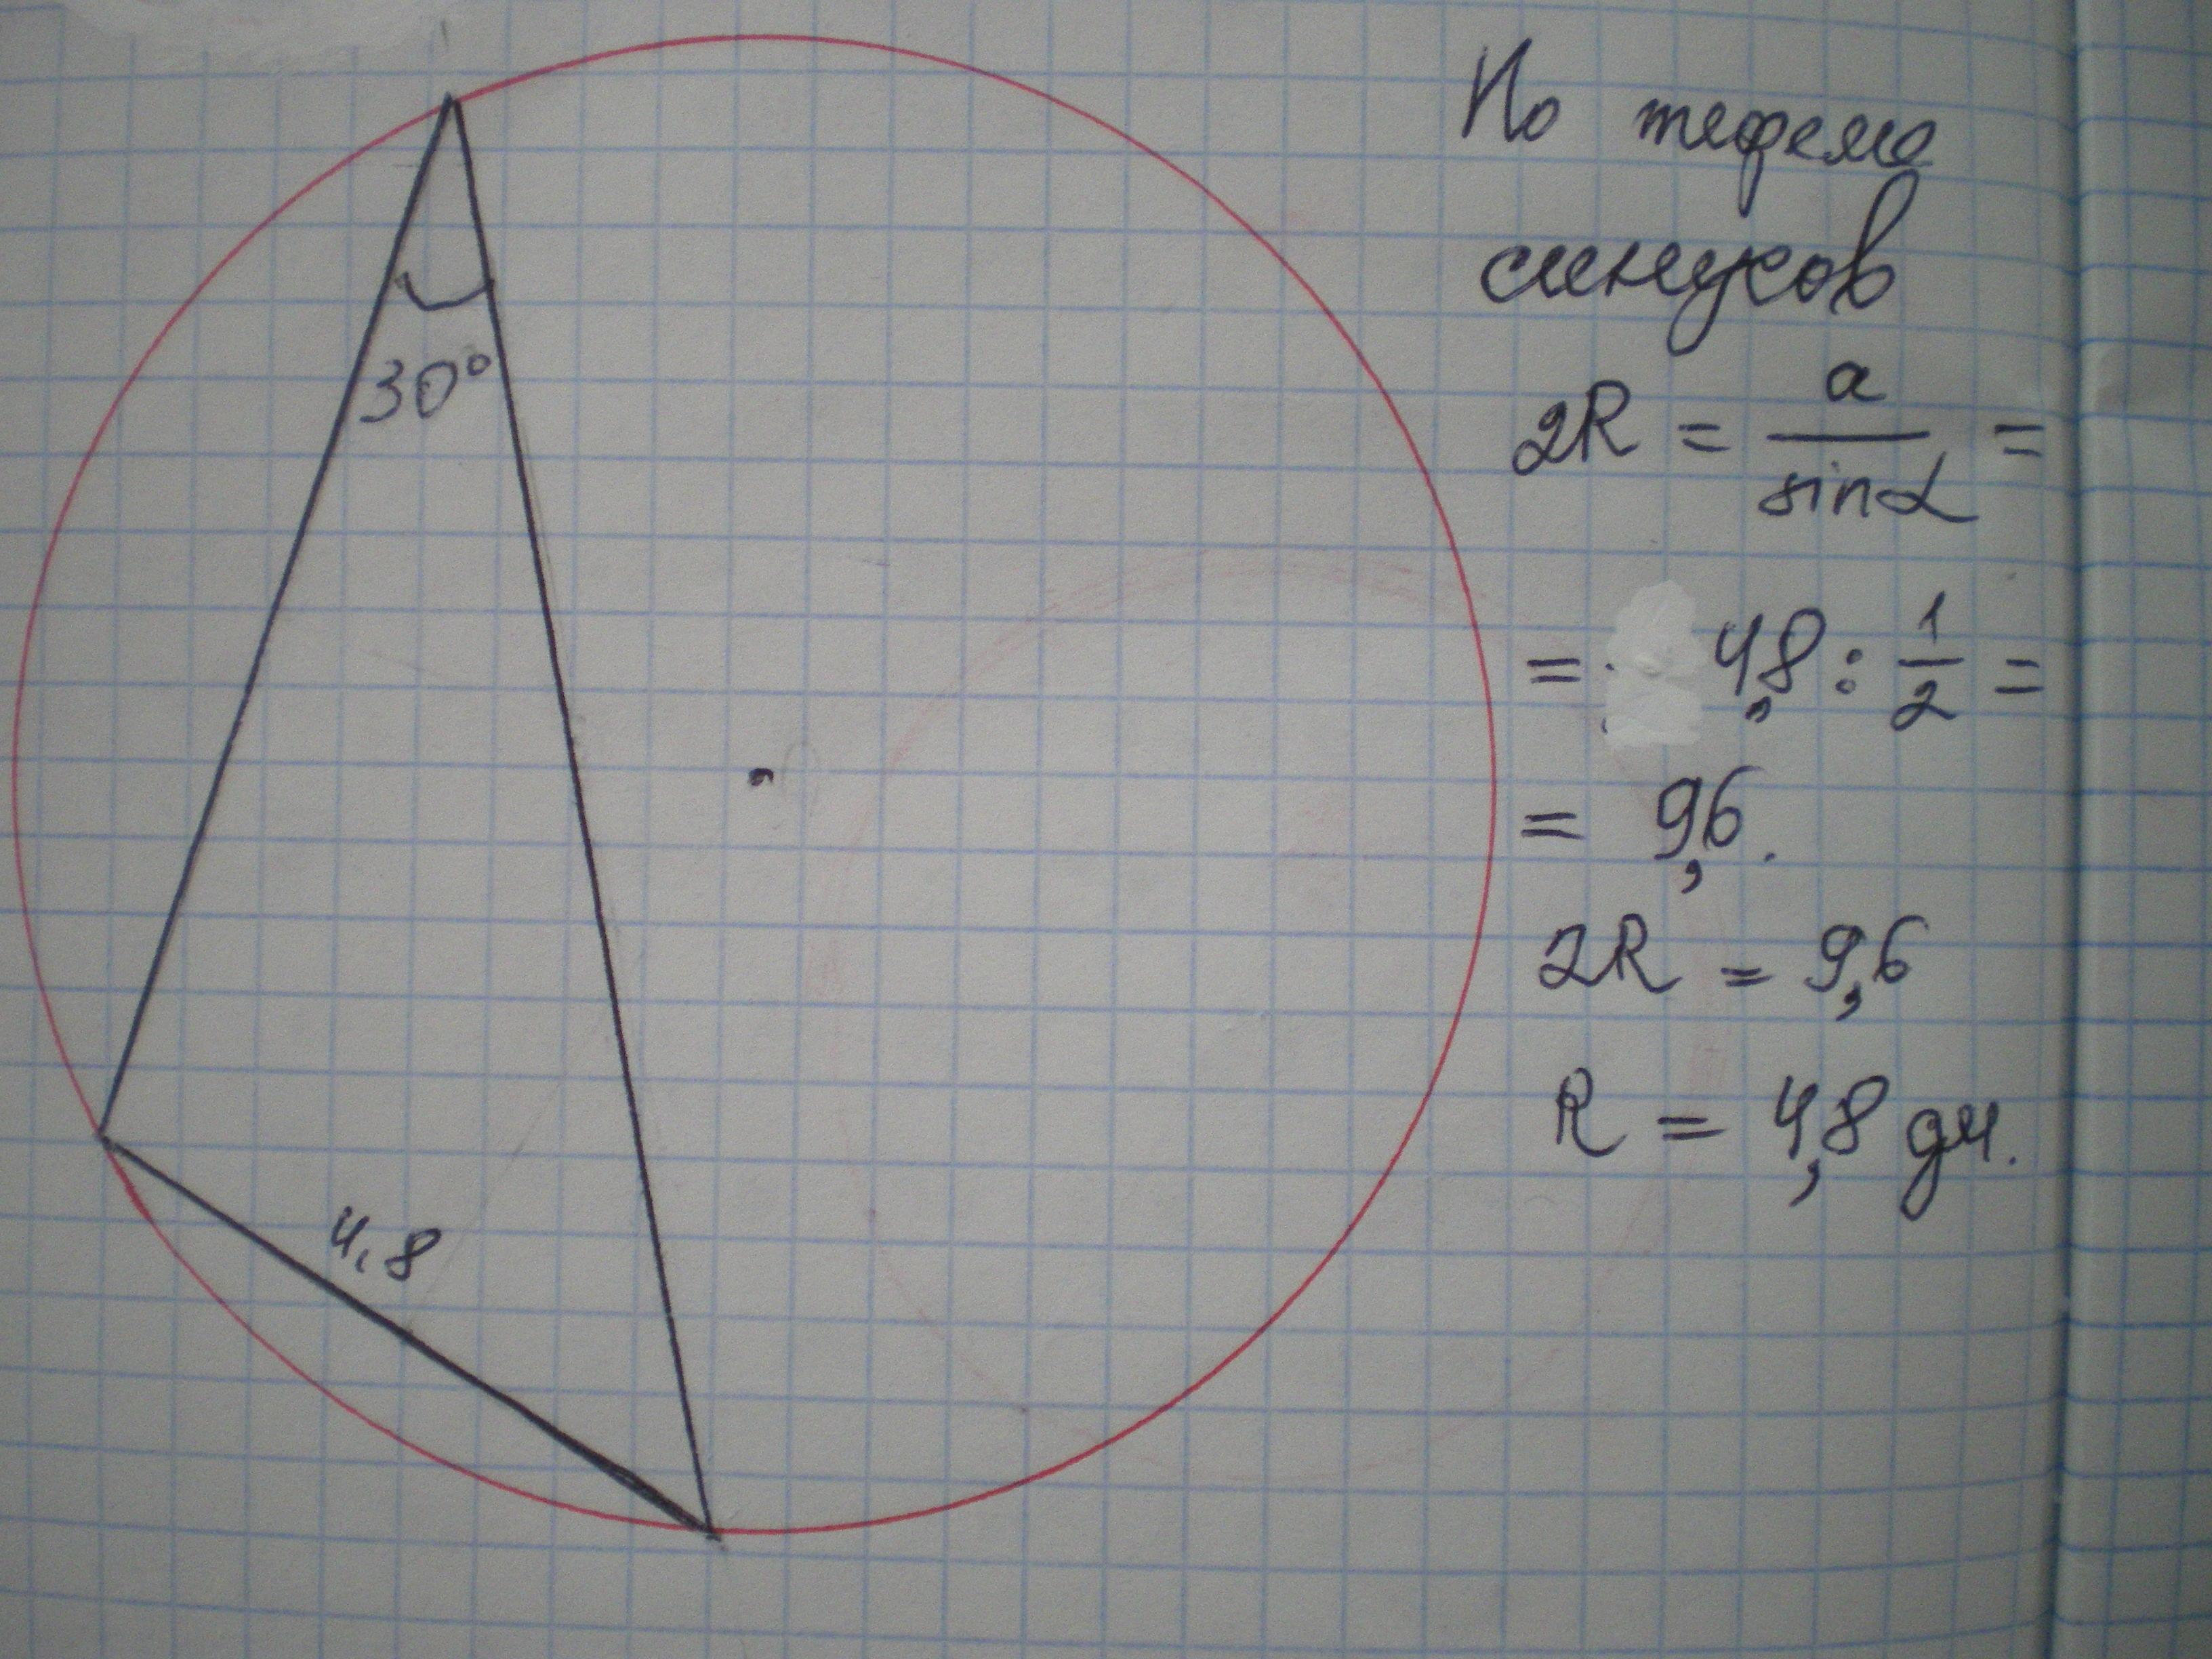 По теореме
синусов
30°
2R = a/sinα =
= 4,8 : 1/2 =
= 9,6.
2R = 9,6
R = 4,8 дм.
4,8